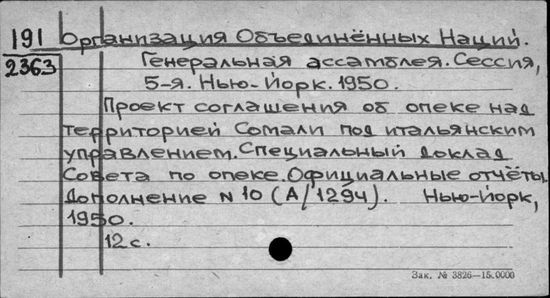 191 Организация Объединённых Наций.
2363 Генеральная ассамблея. Сессия,
5-я. Нью-Йорк. 1950.
Проект соглашения об опеке над
территорией Сомали под итальянским
управлением. Специальный доклад
Совета по опеке. Официальные отчёты.
Дополнение N 10 (A/1294). Нью-Йорк,
1950.
12 с.
Зак. № 3826—15.0000